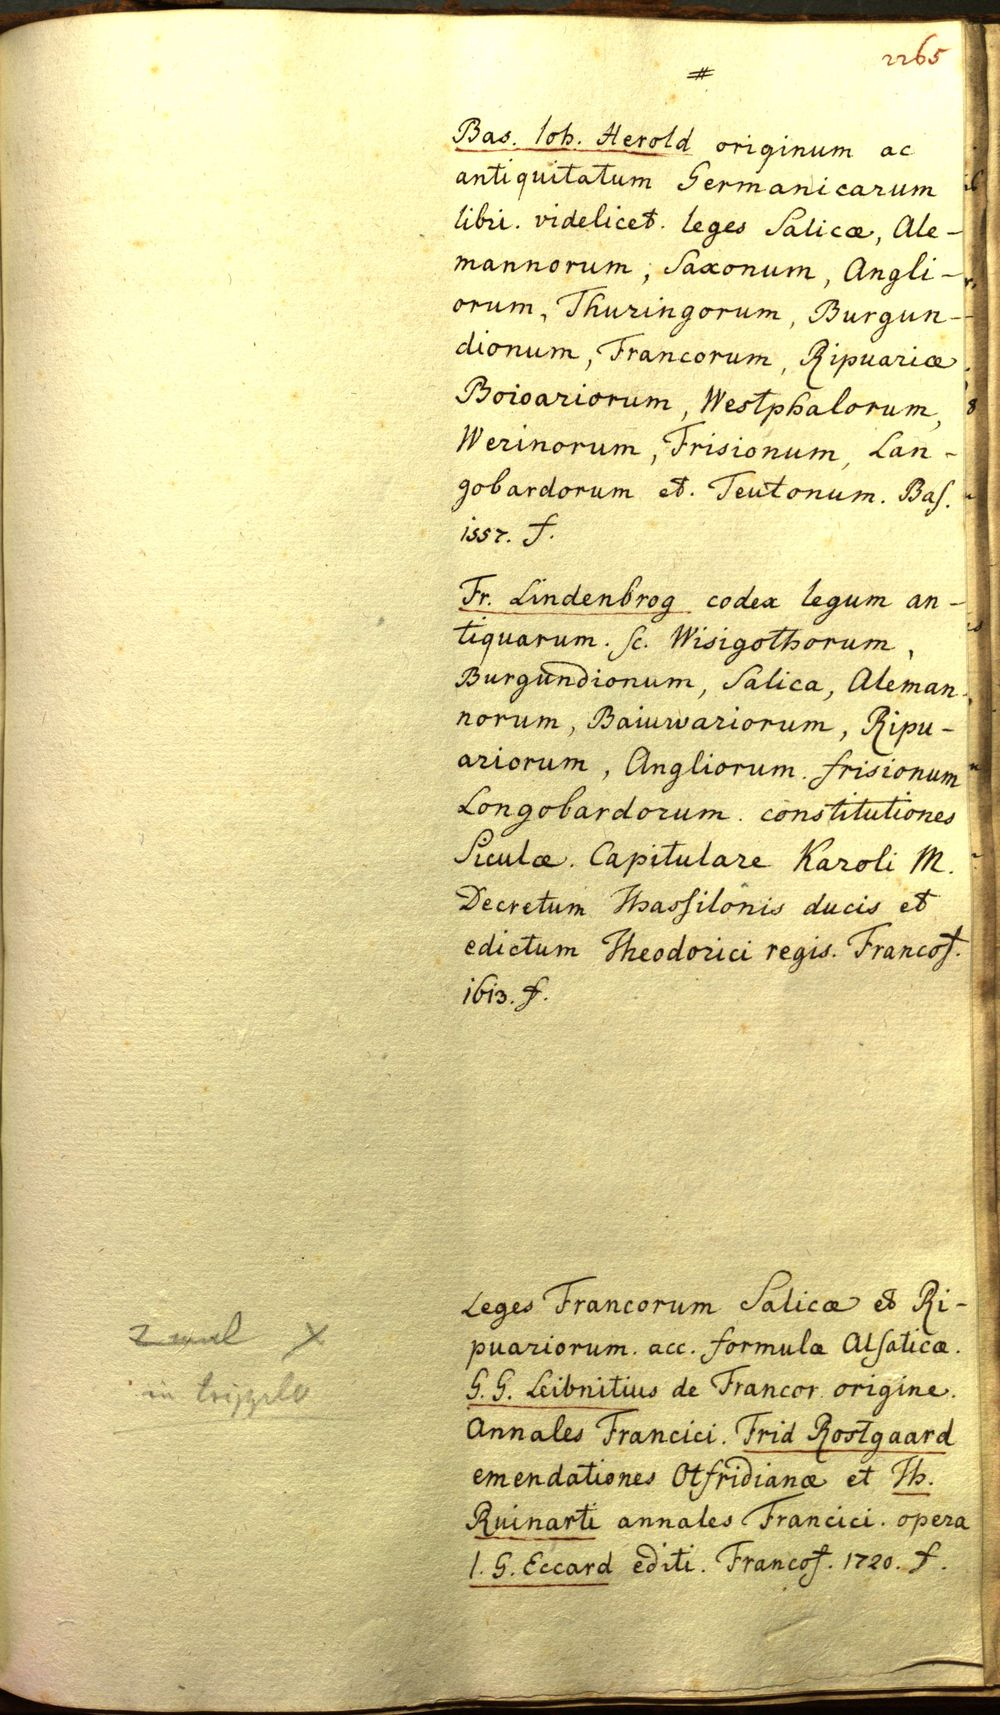 2265
#
Bas. Ioh. Herold originum ac
antiquitatum Germanicarum
libri. videlicet. leges Salicæ, Ale-
mannorum, Saxonum, Angli-
orum, Thuringorum, Burgun-
dionum, Francorum, Ripuariæ
Boioariorum, Westphalorum,
Werinorum, Frisionum, Lan-
gobardorum et. Teutonum. Bas.
1557. f.
Fr. Lindenbrog codex legum an-
tiquarum. sc. Wisigothorum,
Burgundionum, Salica, Aleman
norum, Baiuwariorum, Ripu-
ariorum, Angliorum. frisionum
Longobardorum. constitutiones
Siculæ. Capitulare Karoli M.
Decretum Thassilonis ducis et
edictum Theodorici regis. Francof.
1613. f.
Leges Francorum Salicæ et Ri-
puariorum. acc. formulæ Alsaticæ.
G. G. Leibnitius de Francor. origine.
Annales Francici. Frid Rostgaard
emendationes Otfridianæ et Th.
Ruinarti annales Francici. opera
I. G. Eccard editi. Francof. 1720. f.
2 mal X
in